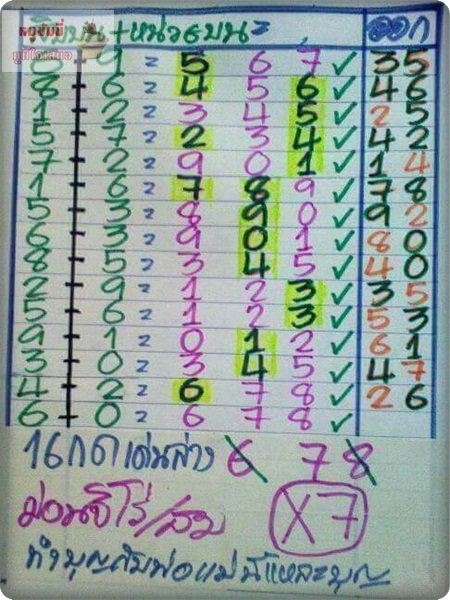 สิบบน + หน่วยบน = ออก
8 + 6 = 4 5 6 ✓ 4 6
1 + 2 = 3 4 5 ✓ 2 5
5 + 7 = 2 3 4 ✓ 4 2
7 + 2 = 9 0 1 ✓ 1 4
1 + 6 = 7 8 9 ✓ 7 8
5 + 3 = 8 9 0 ✓ 9 2
6 + 3 = 9 0 1 ✓ 8 0
8 + 5 = 3 4 5 ✓ 4 0
2 + 9 = 1 2 3 ✓ 3 5
5 + 6 = 1 2 3 ✓ 5 3
9 + 1 = 0 1 2 ✓ 6 1
3 + 0 = 3 4 5 ✓ 4 7
4 + 2 = 6 7 8 ✓ 2 6
6 + 0 = 6 7 8 ✓
7 8
X7
ทำบุญกับพ่อแม่นี่แหละบุญ